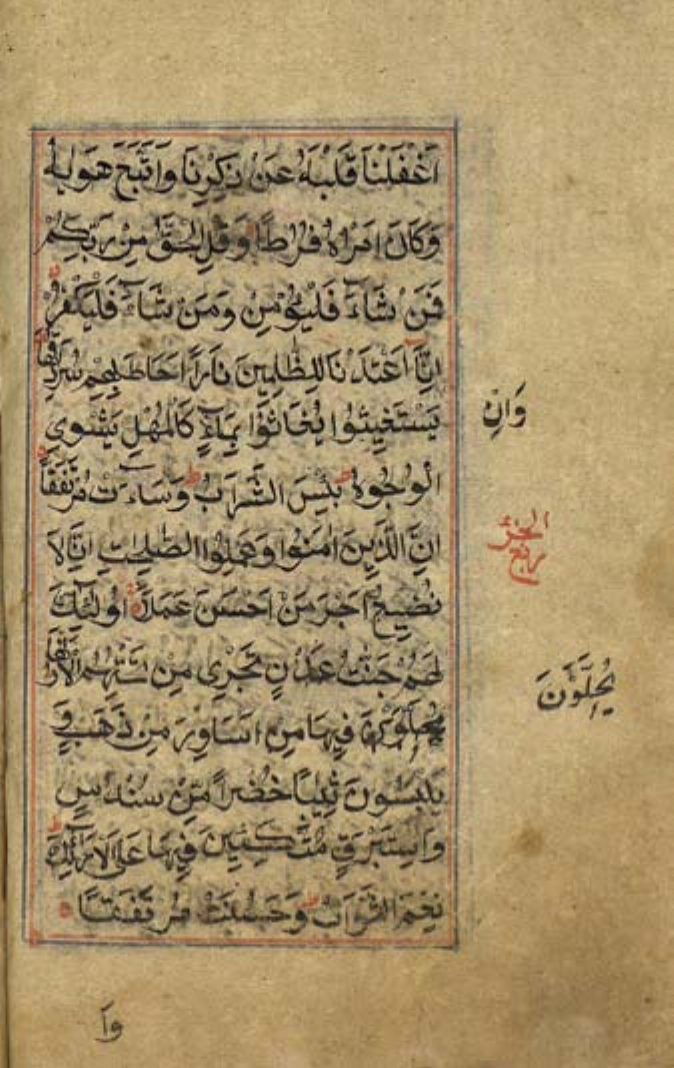 اَغْفَلْنَا قَلْبَهُ عَنْ ذِكْرِنَا وَاتَّبَعَ هَوٰيهُ
وَكَانَ اَمْرُهُ فُرُطًا وَقُلِ الْحَقُّ مِنْ رَبِّكُمْ
فَمَنْ شَاءَ فَلْيُؤْمِنْ وَمَنْ شَاءَ فَلْيَكْفُرْ
اِنَّا اَعْتَدْنَا لِلظّٰلِمِينَ نَارًا اَحَاطَ بِهِمْ سُرَادِقُهَا
يَسْتَغِيثُوا يُغَاثُوا بِمَاءٍ كَالْمُهْلِ يَشْوِى
الْوُجُوهَ بِئْسَ الشَّرَابُ وَسَاءَتْ مُرْتَفَقًا
اِنَّ الَّذِينَ اٰمَنُوا وَعَمِلُوا الصّٰلِحٰتِ اِنَّا لَا
نُضِيعُ اَجْرَ مَنْ اَحْسَنَ عَمَلًا اُولٰئِكَ
لَهُمْ جَنّٰتُ عَدْنٍ تَجْرِى مِنْ تَحْتِهِمُ الْاَنْهٰرُ
يُحَلَّوْنَ فِيهَا مِنْ اَسَاوِرَ مِنْ ذَهَبٍ وَ
يَلْبَسُونَ ثِيَابًا خُضْرًا مِنْ سُنْدُسٍ
وَاِسْتَبْرَقٍ مُتَّكِـِٔينَ فِيهَا عَلَى الْاَرَائِكِ
نِعْمَ الثَّوَابُ وَحَسُنَتْ مُرْتَفَقًا
وَاِنْ
الجزء
ربع
يُحَلَّوْنَ
وا